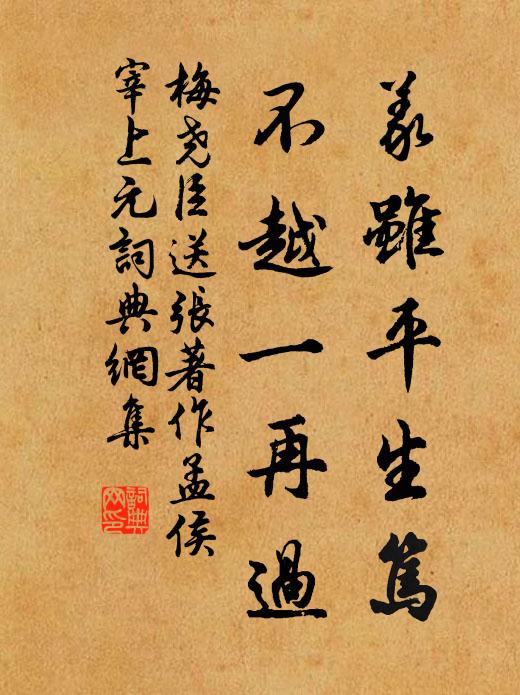 義雖平生篤
不越一再過
梅尧臣送張著作孟侯
宰上元詞典網集
詞典
网印